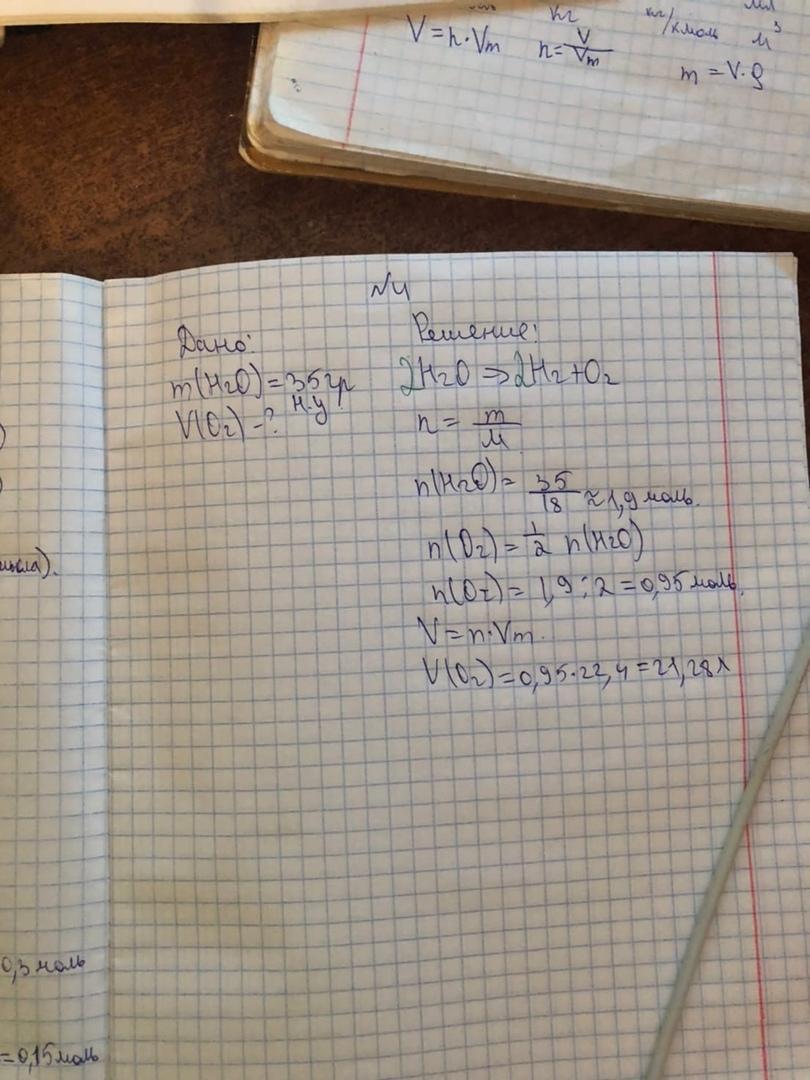 кг
кг/кмоль
м³
V = n·Vm
n = V/Vm
m = V·ρ
№4
Дано:
m(H2O) = 35 гр
н.у
V(O2) - ?
Решение:
2H2O ⇒ 2H2 + O2
n = m/M
n(H2O) = 35/18 ≈ 1,9 моль.
n(O2) = 1/2 n(H2O)
n(O2) = 1,9 : 2 = 0,95 моль.
V = n·Vm.
V(O2) = 0,95·22,4 = 21,28 л
0,3 моль
= 0,15 моль